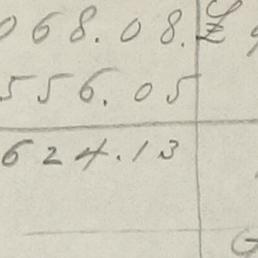 068.08.
556.05
624.13